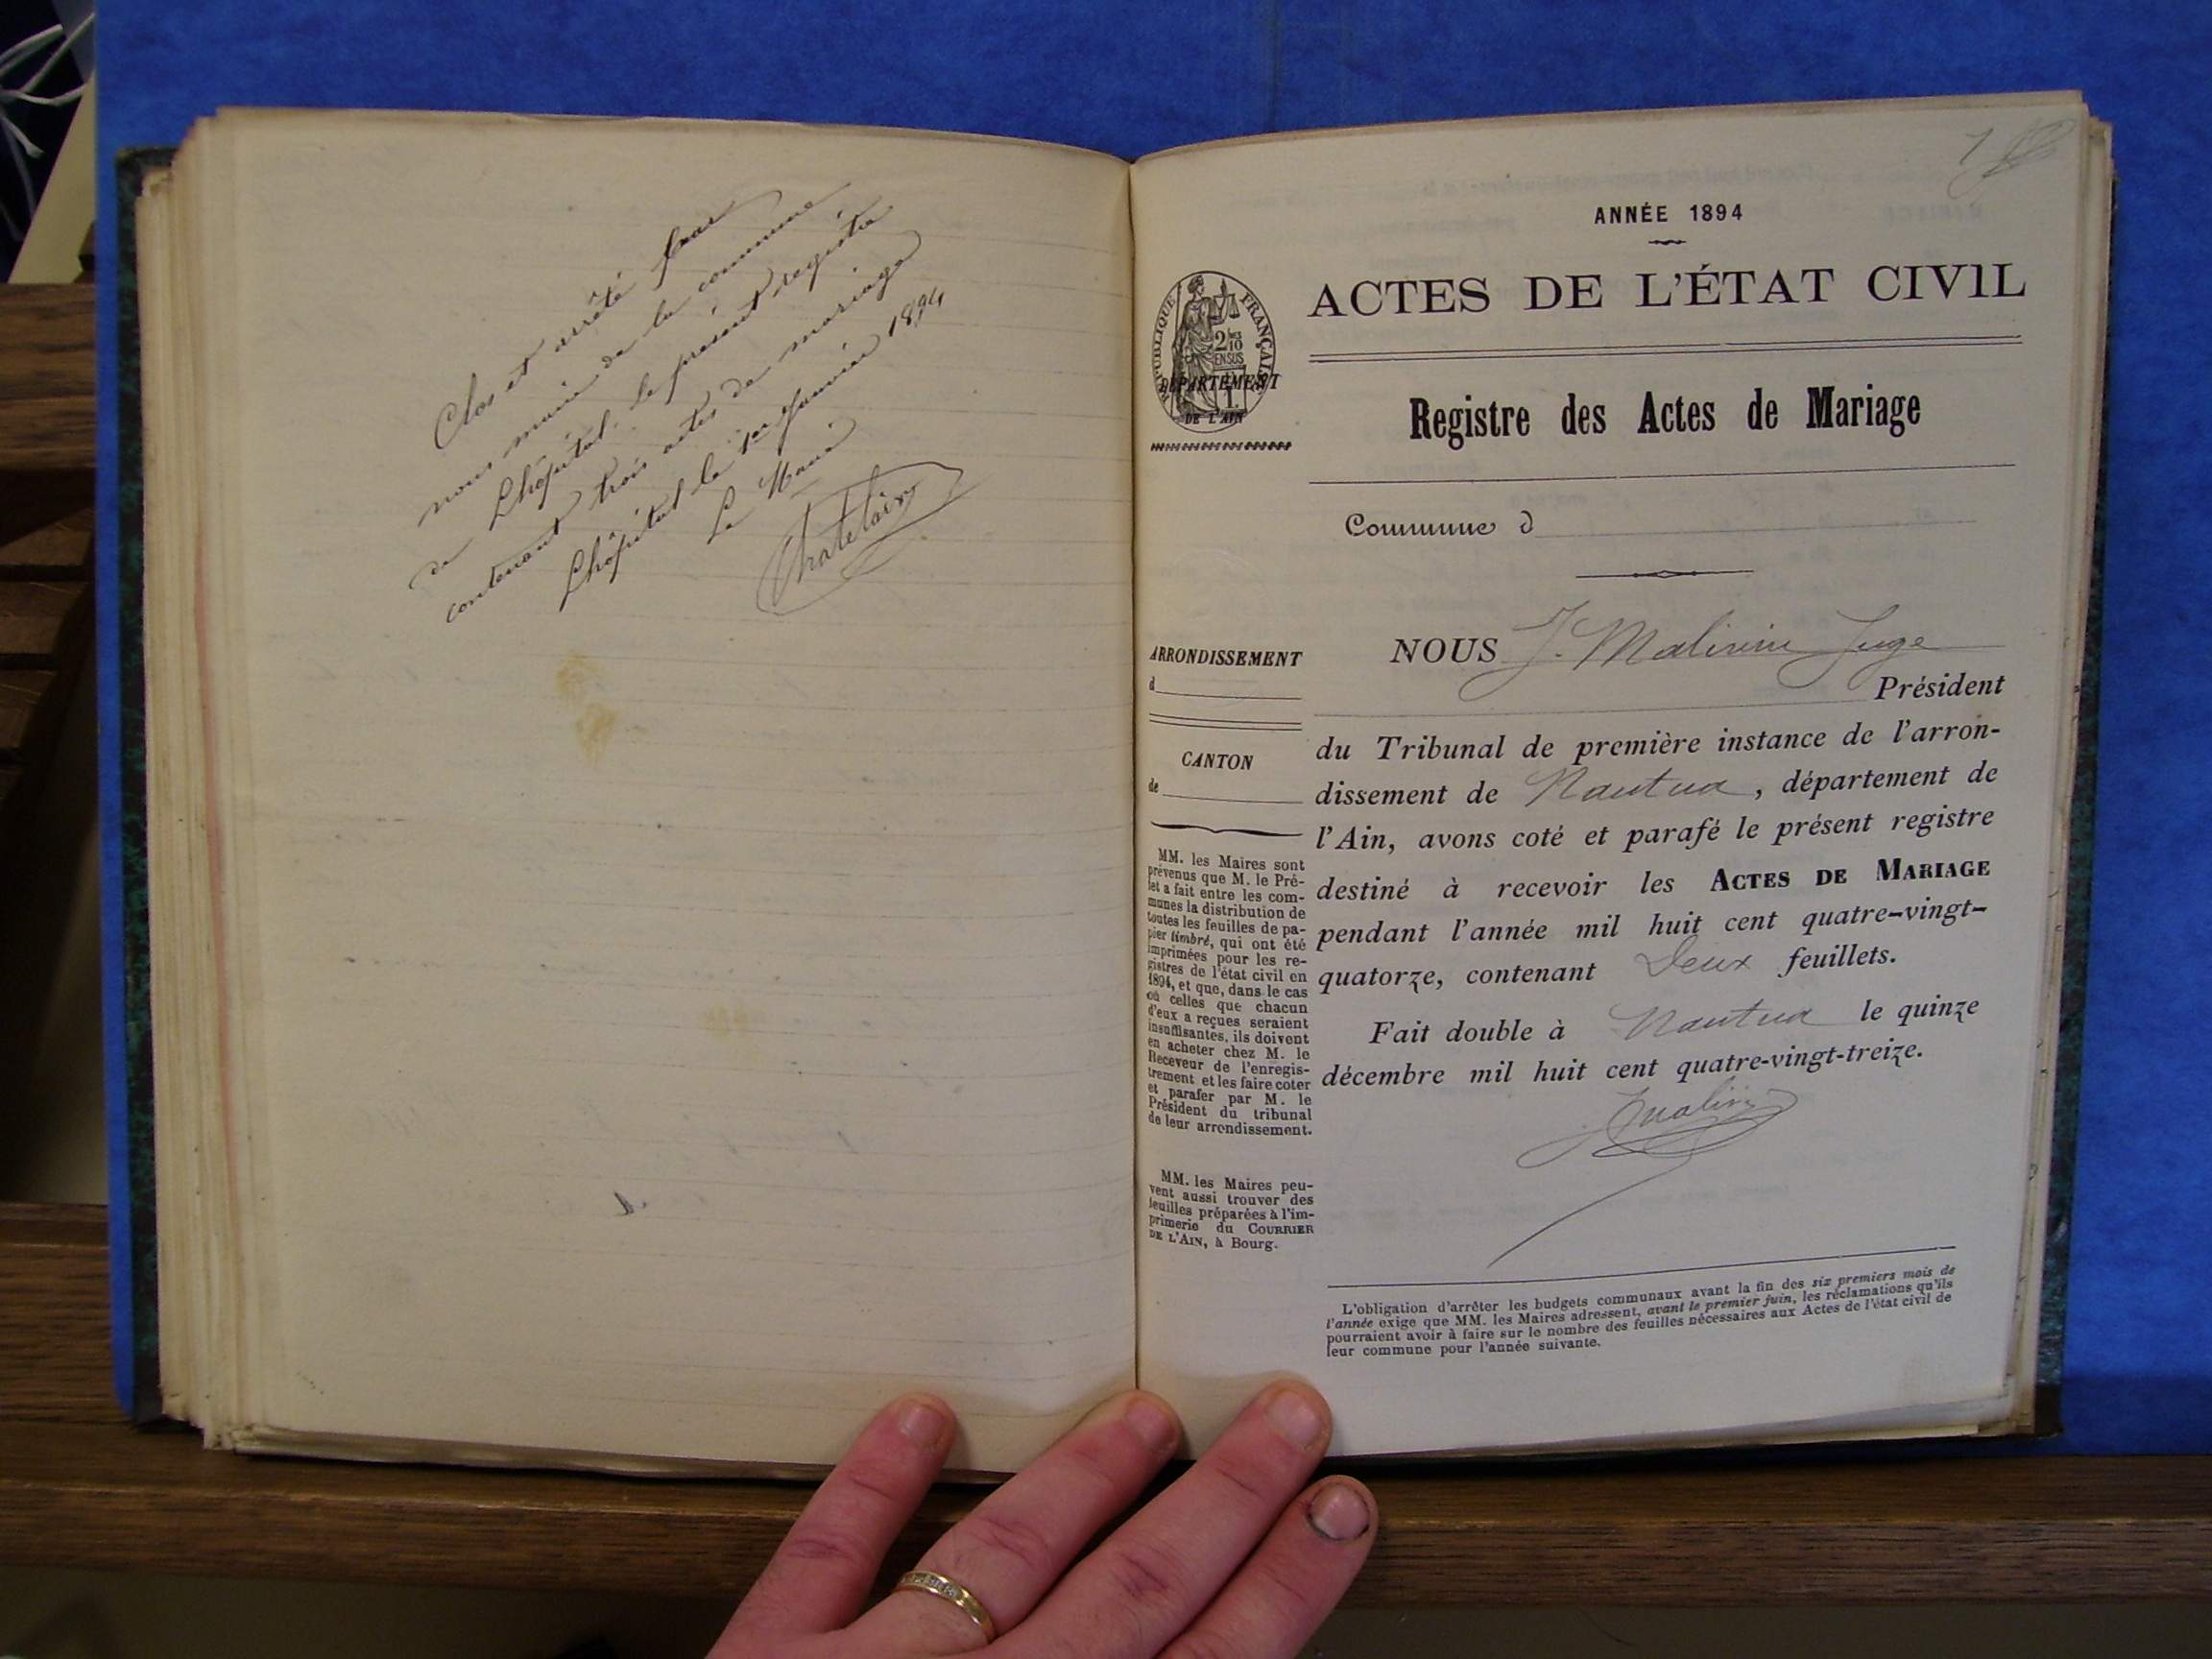 Clos et arrêté par
nous maire de la commune
de Lhôpital le présent registre
contenant trois actes de mariage
Lhôpital le 1er Janvier 1894
Le Maire
Chatelain
ANNÉE 1894
ACTES DE L'ÉTAT CIVIL
RÉPUBLIQUE FRANÇAISE
2/10 EN SUS
DÉPARTEMENT
DE L'AIN
Registre des Actes de Mariage
Commune d
NOUS J. Juge
Président
du Tribunal de première instance de l'arron-
dissement de Nantua, département de
l'Ain, avons coté et parafé le présent registre
destiné à recevoir les ACTES DE MARIAGE
pendant l'année mil huit cent quatre-vingt-
quatorze, contenant Deux feuillets.
Fait double à Nantua le quinze
décembre mil huit cent quatre-vingt-treize.
ARRONDISSEMENT
d
CANTON
de
MM. les Maires sont
prévenus que M. le Pré-
fet a fait entre les com-
munes la distribution de
toutes les feuilles de pa-
pier timbré, qui ont été
imprimées pour les re-
gistres de l'état civil en
1894, et que, dans le cas
où celles que chacun
d'eux a reçues seraient
insuffisantes, ils doivent
en acheter chez M. le
Receveur de l'enregis-
trement et les faire coter
et parafer par M. le
Président du tribunal
de leur arrondissement.
MM. les Maires peu-
vent aussi trouver des
feuilles préparées à l'im-
primerie du COURRIER
DE L'AIN, à Bourg.
L'obligation d'arrêter les budgets communaux avant la fin des six premiers mois de
l'année exige que MM. les Maires adressent, avant le premier juin, les réclamations qu'ils
pourraient avoir à faire sur le nombre des feuilles nécessaires aux Actes de l'état civil de
leur commune pour l'année suivante.